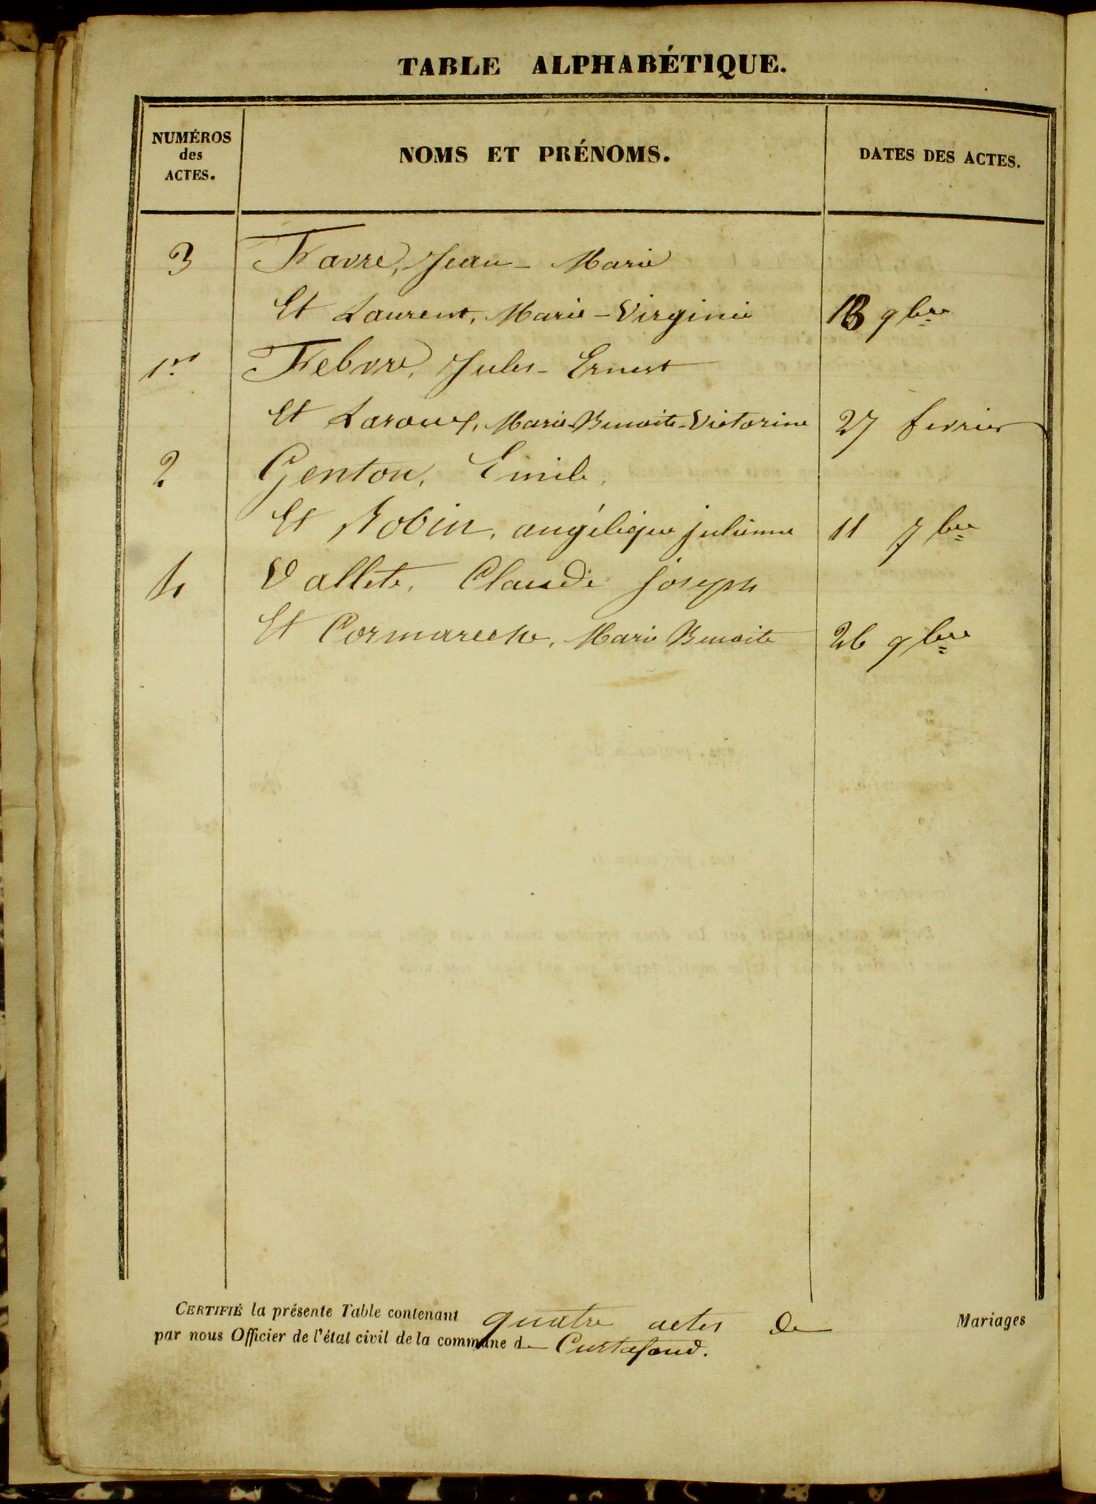 TABLE ALPHABÉTIQUE.
NUMÉROS
des
ACTES.
NOMS ET PRÉNOMS.
DATES DES ACTES.
3 Favre, Jean-Marie
Et Laurent, Marie-Virginie 13 9bre
1er Febvre, Jules-Ernest
Et Laroux, Marie-Benoite-Victorine 27 fevrier
2 Genton, Emile,
Et Robin, angélique julienne 11 7bre
4 Vallete, Claude joseph
Et Cormareche, Marie Benoite 26 9bre
CERTIFIÉ la présente Table contenant quatre actes de Mariages
par nous Officier de l'état civil de la commune de Curtafond.